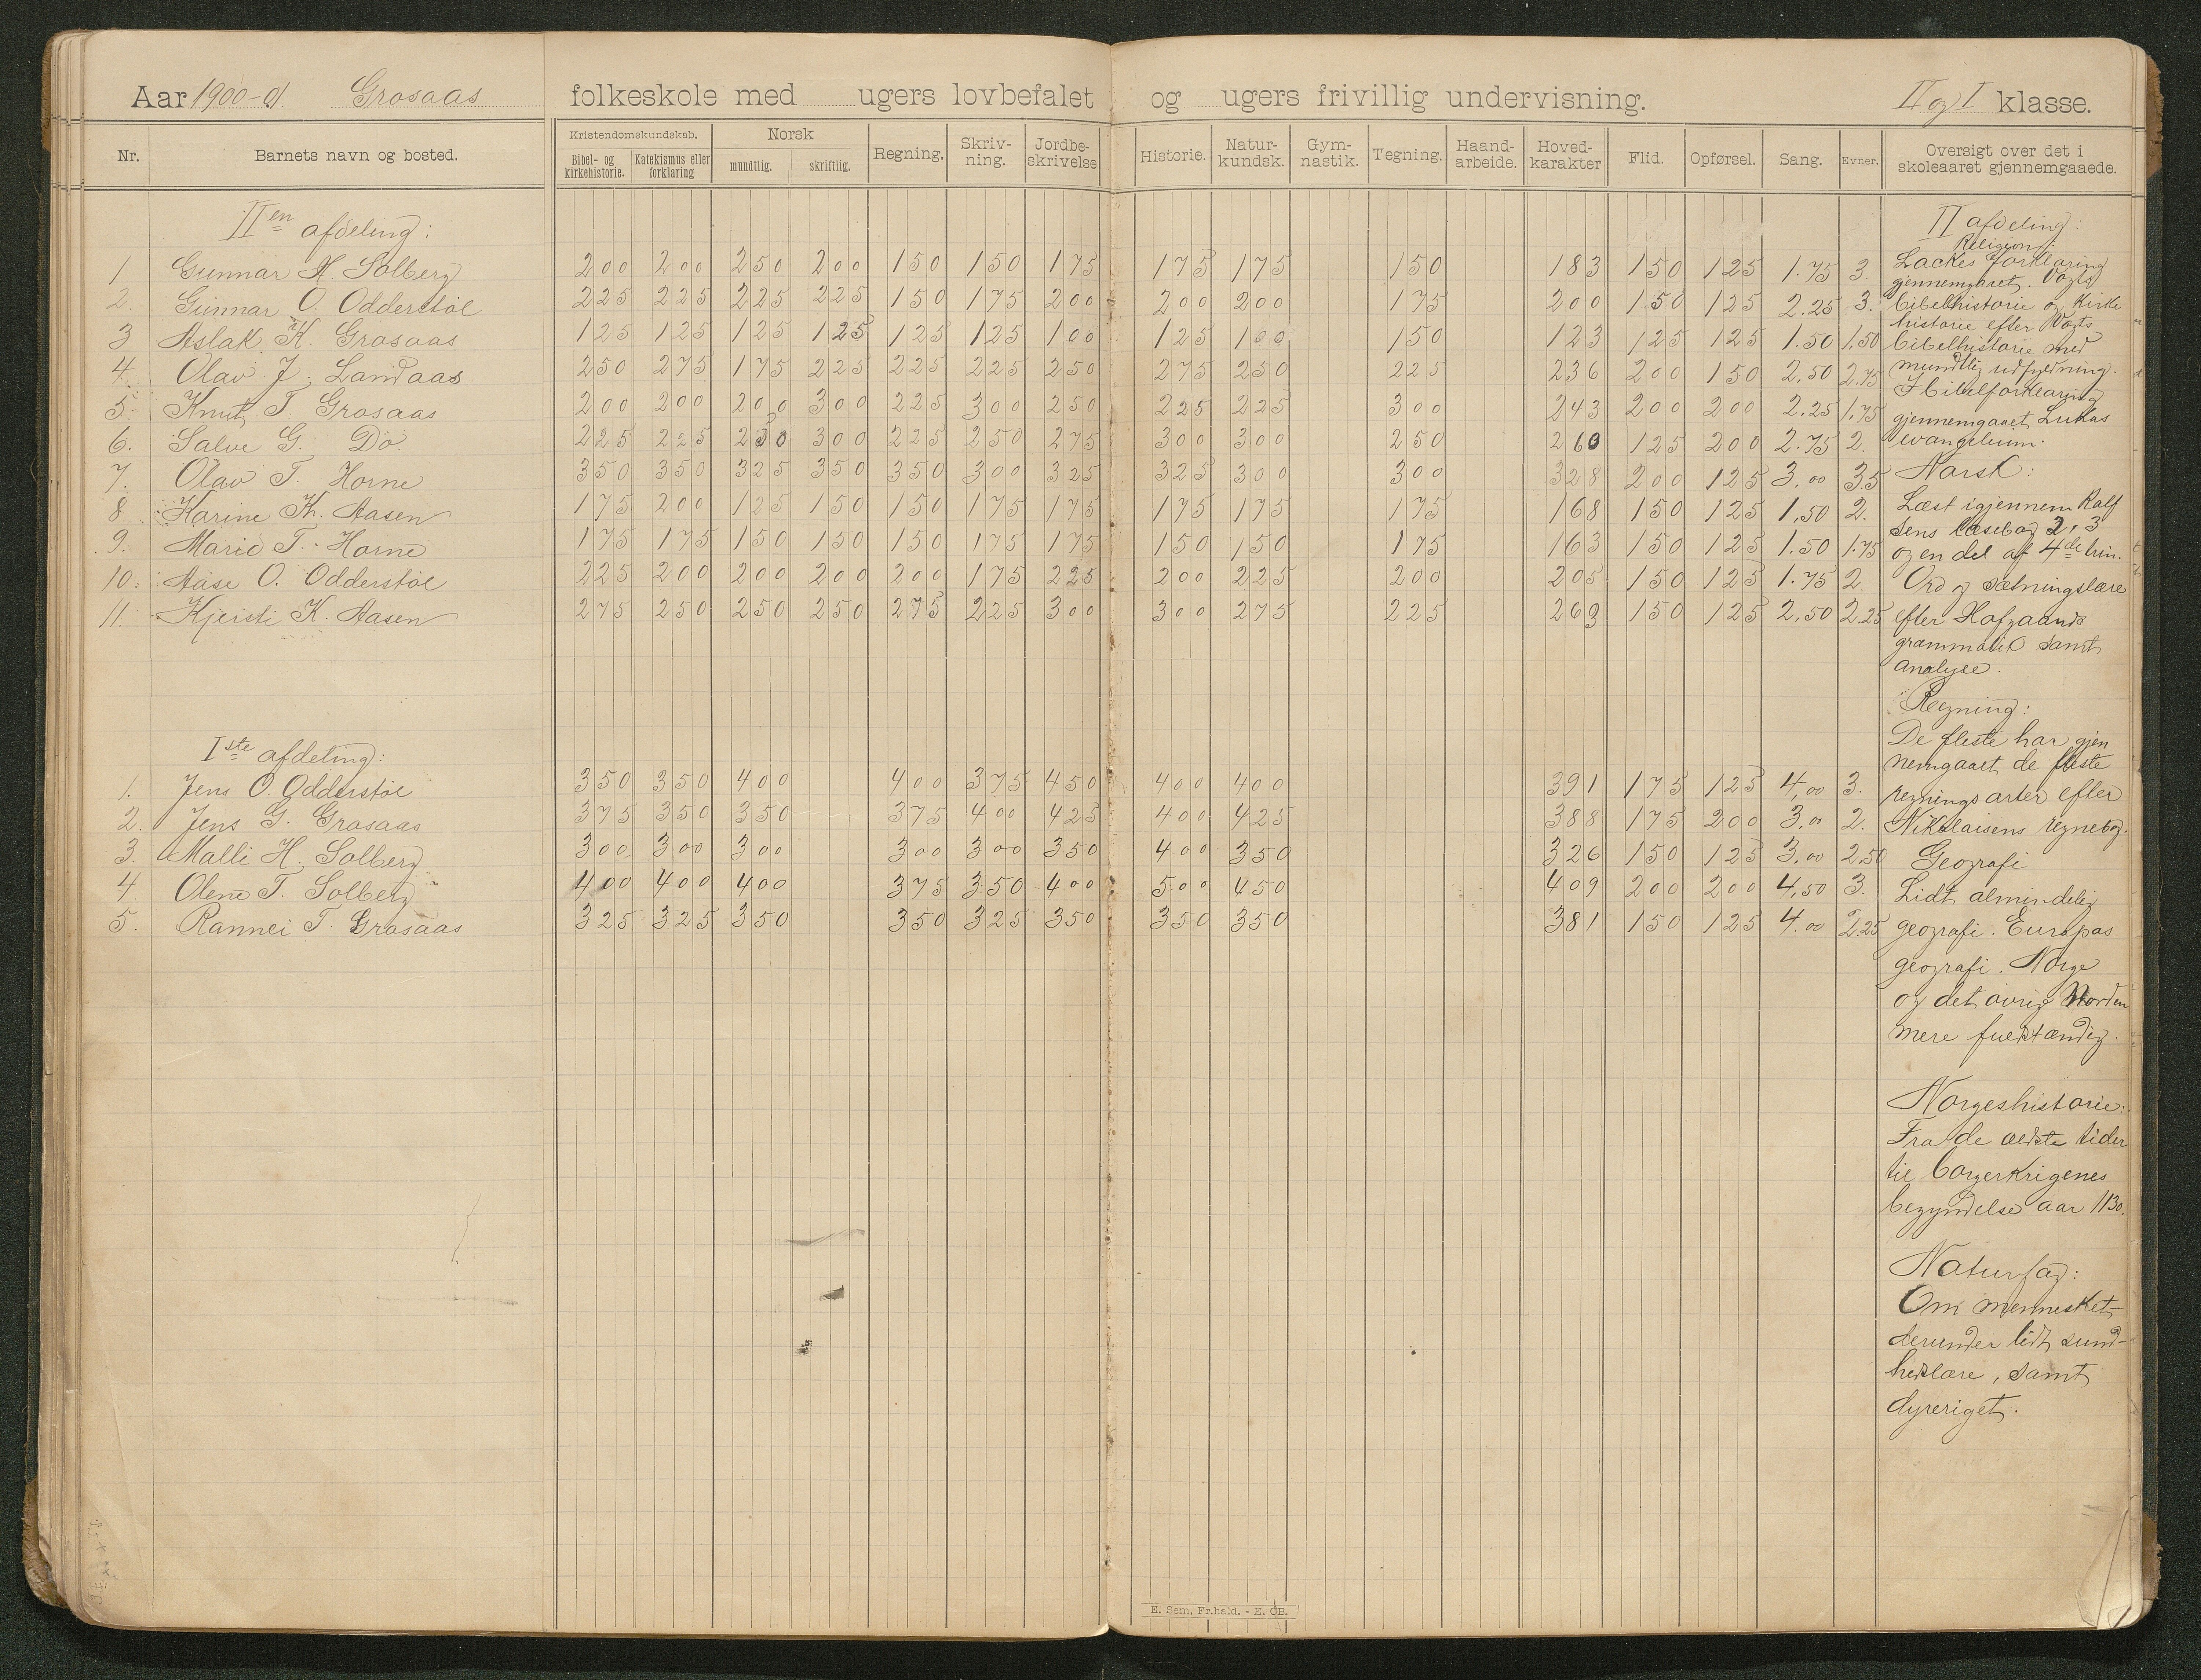 Aar 1900-01. Grosaas folkeskole med ugers lovbefalet og ugers frivillig undervisning. II og I klasse.
Nr. Barnets navn og bosted. Kristendomskundskab. Bibel- og kirkehistorie. Katekismus eller forklaring Norsk mundtlig. skriftlig. Regning. Skriv-ning. Jordbe-skrivelse Historie. Natur-kundsk. Gym-nastik. Tegning. Haand-arbeide. Hoved-karakter Flid. Opførsel. Sang. Evner. Oversigt over det i skoleaaret gjennemgaaede.
IIen afdeling:
1 Gunnar H. Solberg 200 200 250 200 150 150 175 175 175 150 183 150 125 1.75 3.
2. Gunnar O. Odderstøl 225 225 225 225 150 175 200 200 200 175 200 150 125 2.25 3.
3 Aslak K. Grosaas 125 125 125 125 125 125 100 125 100 150 123 125 125 1.50 1,50
4. Olav J. Landaas 250 275 175 225 225 225 250 275 250 225 236 200 150 2,50 2.75
5. Knut T. Grosaas 200 200 200 300 225 300 250 225 225 300 243 200 200 2.25 1.75
6. Salve G. Do. 225 225 250 300 225 250 275 300 300 250 260 125 200 2.75 2.
7. Olav T. Horne 350 350 325 350 350 300 325 325 300 300 328 200 125 3.00 3.5
8 Karine K. Aasen 175 200 125 150 150 175 175 175 175 175 168 150 125 1,50 2.
9. Marie T. Horne 175 175 150 150 150 175 175 150 150 175 163 150 125 1.50 1.75
10. Aase O. Odderstøl 225 200 200 200 200 175 225 200 225 200 205 150 125 1.75 2.
11. Kjersti K. Aasen 275 250 250 250 275 225 300 300 275 225 269 150 125 2,50 2.25
Iste afdeling:
1. Jens O. Odderstøl 350 350 400 400 375 450 400 400 391 175 125 4,00 3.
2. Jens G. Grosaas 375 350 350 375 400 425 400 425 388 175 200 3.00 2.
3. Malli H. Solberg 300 300 300 300 300 350 400 350 326 150 125 3.00 2.50
4. Olene T. Solberg 400 400 400 375 350 400 500 450 409 200 200 4,50 3.
5. Rannei T. Grosaas 325 325 350 350 325 350 350 350 381 150 125 4.00 2.25
II afdeling:
Religion:
Lackes forklaring
gjennemgaaet. Vogts
bibelhistorie og Kirke
historie efter Vogts
bibelhistorie med
mundtlig udfyldning.
I bibelforklaring
gjennemgaaet Lukas
evangelium.
Norsk:
Læst igjennem Rolf
sens læsebog 2, 3
og en del af 4de trin.
Ord og sætningslære
efter Hofgaards
grammatik samt
analyse.
Regning:
De fleste har gjen
nemgaaet de fleste
regningsarter efter
Nikolaisens regnebog.
Geografi
Lidt almindelig
geografi. Europas
geografi. Norge
og det øvrig Norden
mere fuldstændig.
Norgeshistorie:
Fra de ældste tider
til borgerkrigenes
begyndelse aar 1130.
Naturfag:
Om mennesket
derunder lidt sund-
hedslære, samt
dyreriget.
E. Sem, Fr.hald. - E. ØB.